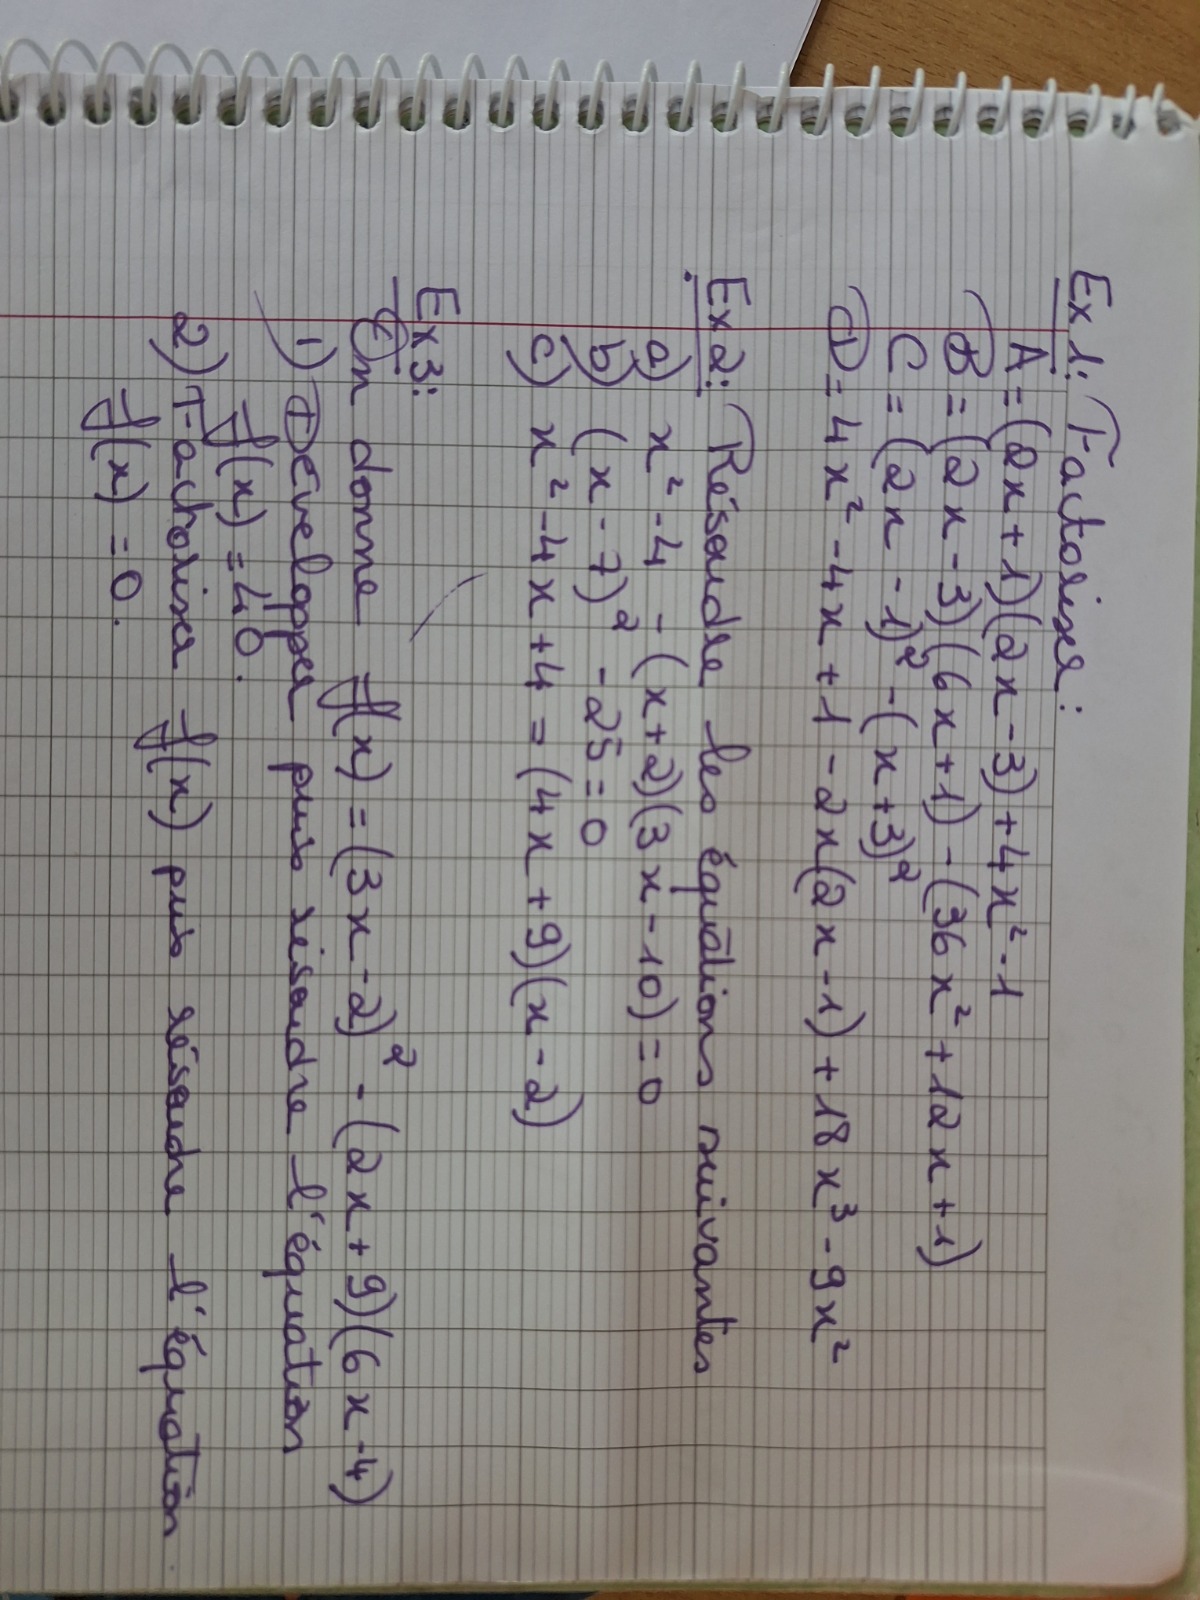 Ex 1: Factoriser:
A = (2x+1)(2x-3)+4x²-1
B = (2x-3)(6x+1)-(36x²+12x+1)
C = (2x-1)²-(x+3)²
D = 4x²-4x+1-2x(2x-1)+18x³-9x²
Ex 2: Résoudre les équations suivantes
a) x²-4-(x+2)(3x-10)=0
b) (x-7)²-25=0
c) x²-4x+4=(4x+9)(x-2)
Ex 3:
On donne f(x)=(3x-2)²-(2x+9)(6x-4)
1) Développer puis résoudre l'équation
f(x)=40.
2) Factoriser f(x) puis résoudre l'équation
f(x)=0.